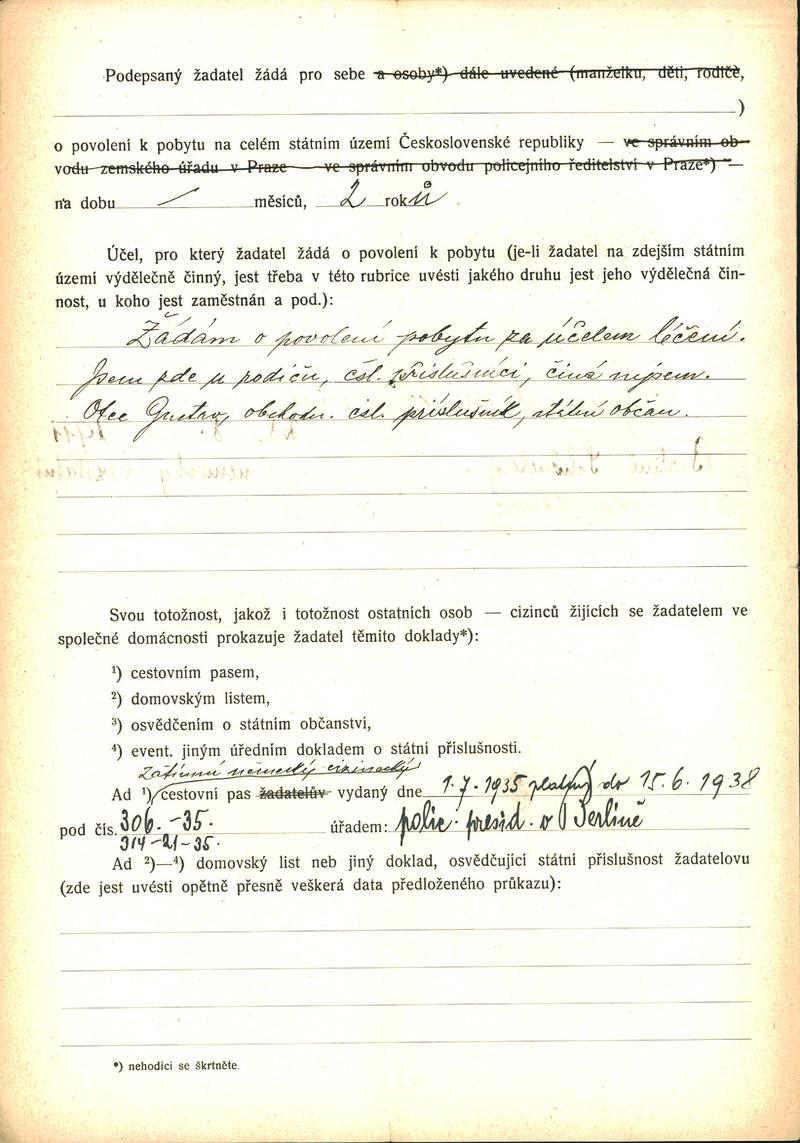 Podepsaný žadatel žádá pro sebe a osoby*) dále uvedené (manželku, děti, rodiče,
)
o povolení k pobytu na celém státním území Československé republiky — ve správním ob-
vodu zemského úřadu v Praze — ve správním obvodu policejního ředitelství v Praze*) —
na dobu — měsíců, 2 roků.
Účel, pro který žadatel žádá o povolení k pobytu (je-li žadatel na zdejším státním
území výdělečně činný, jest třeba v této rubrice uvésti jakého druhu jest jeho výdělečná čin-
nost, u koho jest zaměstnán a pod.):
Žádám o povolení pobytu za účelem léčení.
Jsem zde u rodičů, čsl. příslušníci, činá nejsem.
Otec Gustav, obchodn. čsl. příslušník, státní občan.
Svou totožnost, jakož i totožnost ostatních osob — cizinců žijících se žadatelem ve
společné domácnosti prokazuje žadatel těmito doklady*):
¹) cestovním pasem,
²) domovským listem,
³) osvědčením o státním občanství,
⁴) event. jiným úředním dokladem o státní příslušnosti.
německý cizinecký
Ad ¹) cestovní pas žadatelův vydaný dne 1.7.1935 platný do 15.6.1938
pod čís. 306.-35. úřadem: polic. presid. v Berlíně
314-21-35.
Ad ²)—⁴) domovský list neb jiný doklad, osvědčující státní příslušnost žadatelovu
(zde jest uvésti opětně přesně veškerá data předloženého průkazu):
*) nehodící se škrtněte.